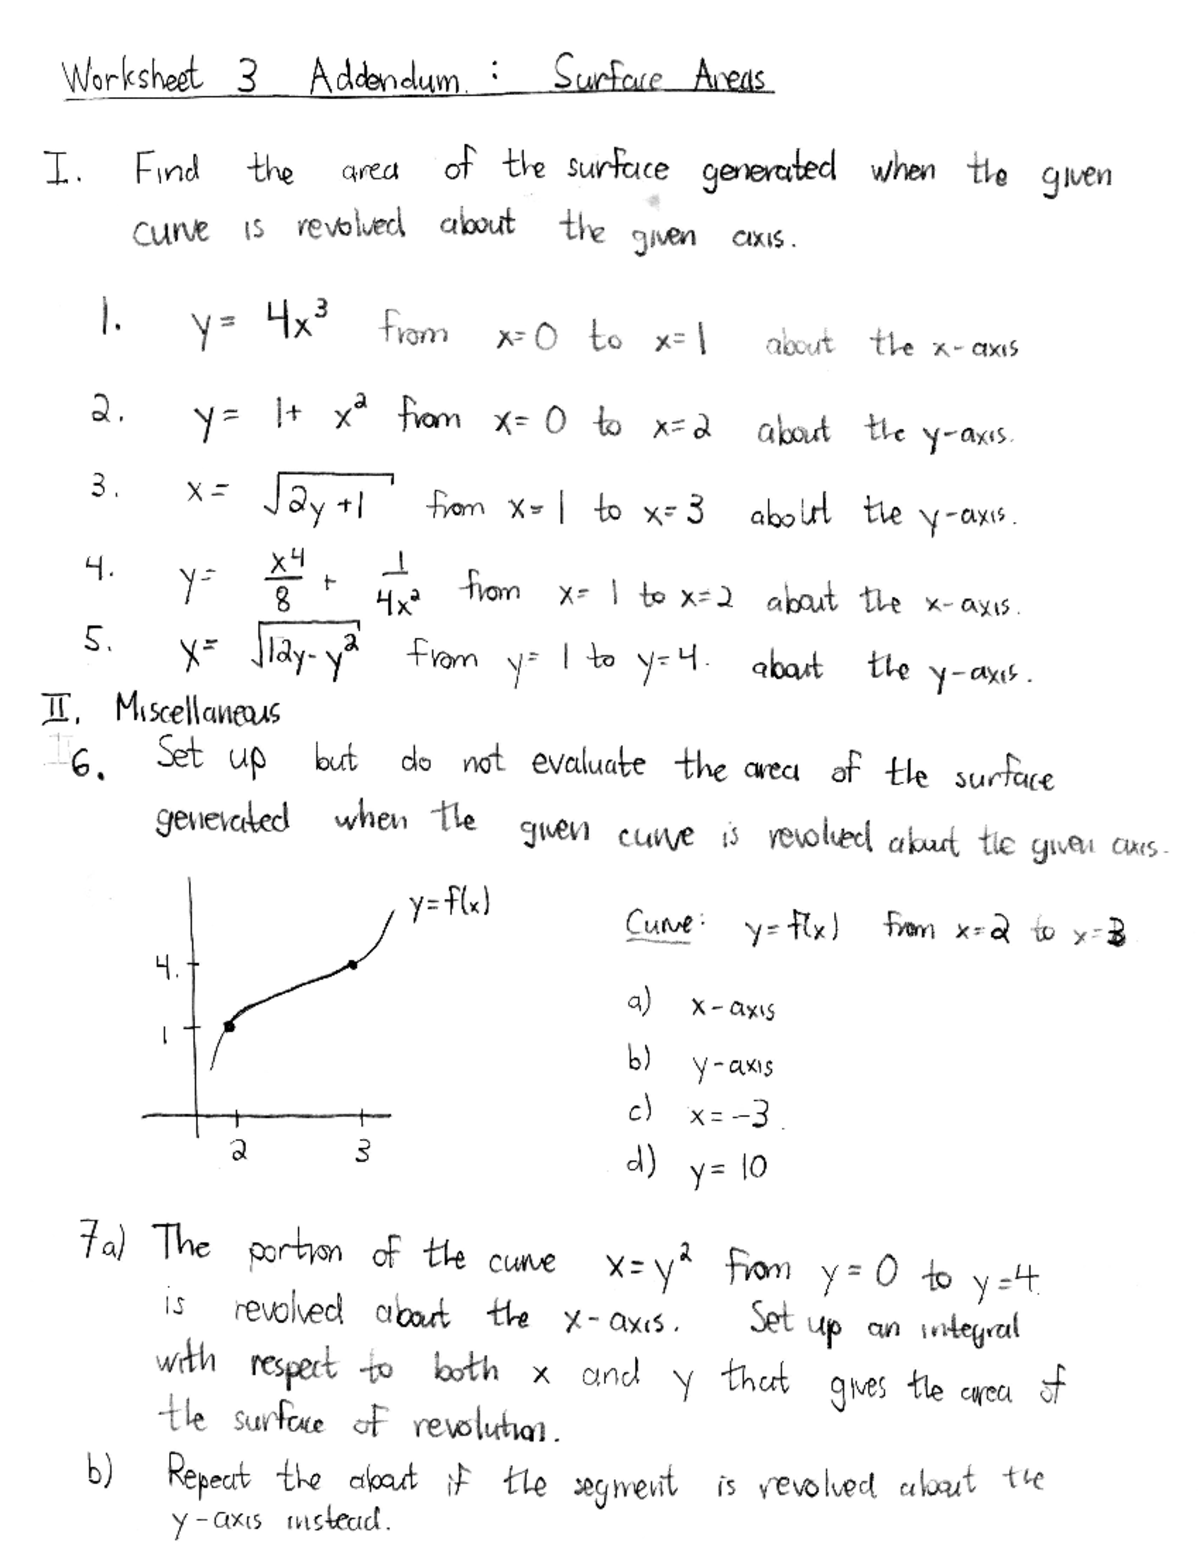 Worksheet 3 Addendum : Surface Areas
I. Find the area of the surface generated when the given
curve is revolved about the given axis.
1. y = 4x³ from x=0 to x=1 about the x-axis
2. y = 1+ x² from x=0 to x=2 about the y-axis.
3. x = √(2y+1) from x=1 to x=3 about the y-axis.
4. y = x⁴/8 + 1/4x² from x=1 to x=2 about the x-axis.
5. x = √(12y-y²) from y=1 to y=4. about the y-axis.
II. Miscellaneous
6. Set up but do not evaluate the area of the surface
generated when the given curve is revolved about the given axis.
y=f(x)
4.
1
2 3
Curve: y=f(x) from x=2 to x=3
a) x-axis
b) y-axis
c) x=-3.
d) y=10
7a) The portion of the curve x=y² from y=0 to y=4.
is revolved about the x-axis. Set up an integral
with respect to both x and y that gives the area of
the surface of revolution.
b) Repeat the about if the segment is revolved about the
y-axis instead.